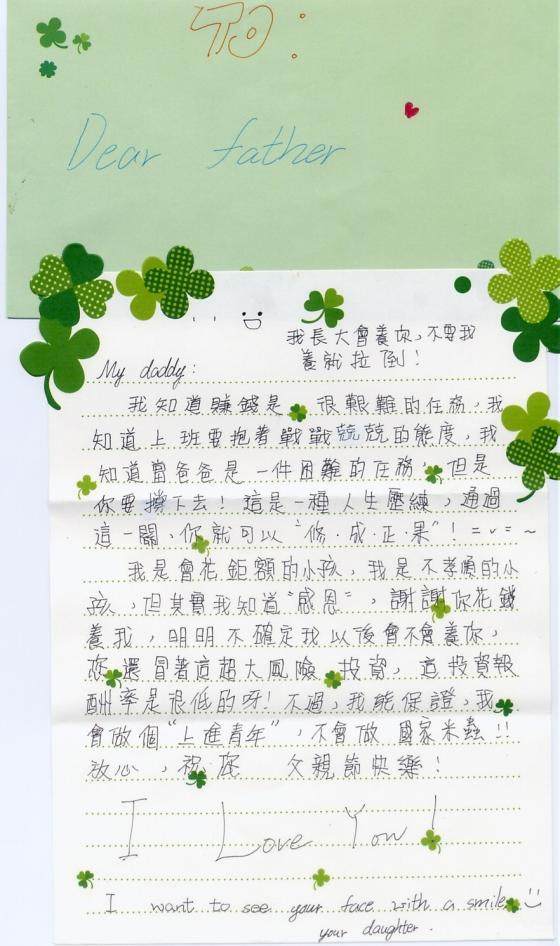 To:
Dear father
我長大會養你，不要我
養就拉倒！
My daddy:
我知道賺錢是很艱難的任務，我
知道上班要抱著戰戰兢兢的態度，我
知道當爸爸是一件困難的任務，但是
你要撐下去！這是一種人生歷練，通過
這一關，你就可以“修．成．正．果”！=v=~
我是會花鉅額的小孩，我是不孝順的小
孩，但其實我知道“感恩”，謝謝你花錢
養我，明明不確定我以後會不會養你，
你還冒著這超大風險投資，這投資報
酬率是很低的呀！不過，我能保證，我
會做個“上進青年”，不會做國家米蟲！！
放心，祝您 父親節快樂！
I Love You!
I want to see your face with a smile
your daughter.